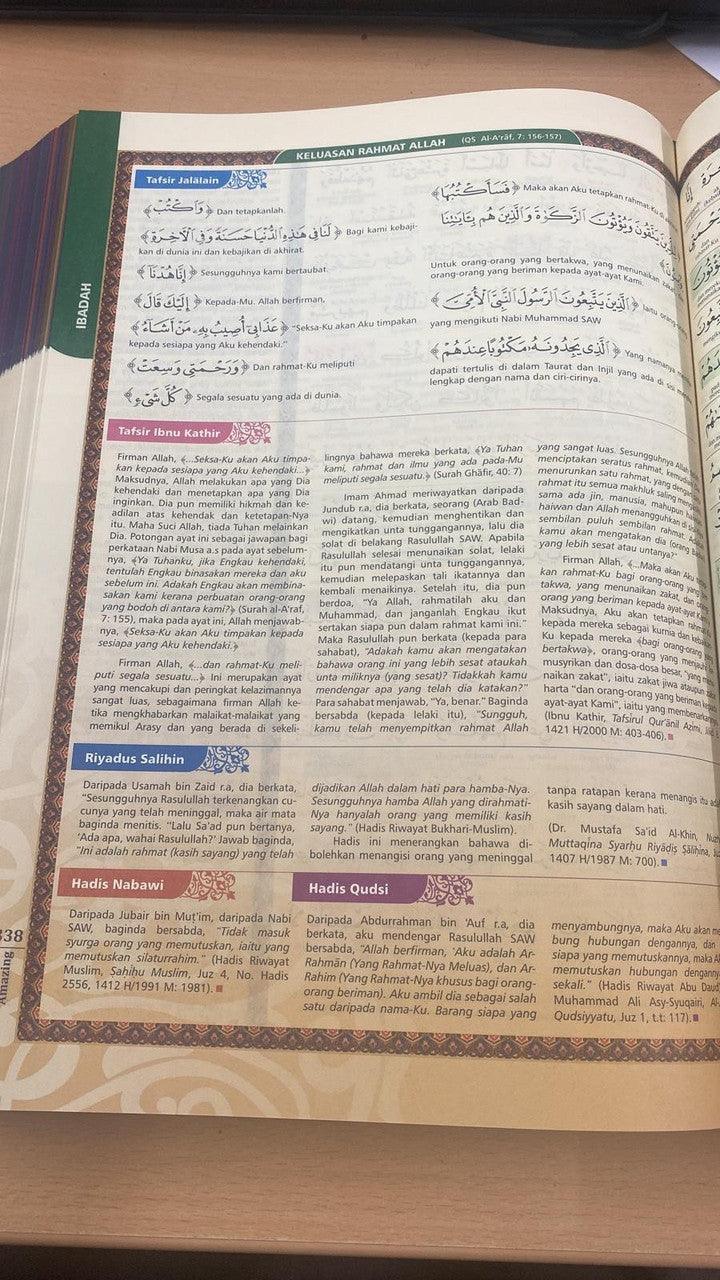 KELUASAN RAHMAT ALLAH (QS Al-A'rāf, 7: 156-157)
IBADAH
Tafsir Jalālain
﴿وَاكْتُبْ﴾ Dan tetapkanlah
﴿لَنَا فِي هَٰذِهِ الدُّنْيَا حَسَنَةً وَفِي الْآخِرَةِ﴾ Bagi kami kebaji-
kan di dunia ini dan kebajikan di akhirat.
﴿إِنَّا هُدْنَا﴾ Sesungguhnya kami bertaubat.
﴿إِلَيْكَ قَالَ﴾ Kepada-Mu. Allah berfirman,
﴿عَذَابِي أُصِيبُ بِهِ مَنْ أَشَاءُ﴾ "Seksa-Ku akan Aku timpakan
kepada sesiapa yang Aku kehendaki."
﴿وَرَحْمَتِي وَسِعَتْ﴾ Dan rahmat-Ku meliputi
﴿كُلَّ شَيْءٍ﴾ Segala sesuatu yang ada di dunia.
﴿فَسَأَكْتُبُهَا﴾ Maka akan Aku tetapkan rahmat-Ku di
يَتَّقُونَ وَيُؤْتُونَ الزَّكَاةَ وَالَّذِينَ هُم بِآيَاتِنَا
Untuk orang-orang yang bertakwa, yang menunaikan zakat
orang-orang yang beriman kepada ayat-ayat Kami.
﴿الَّذِينَ يَتَّبِعُونَ الرَّسُولَ النَّبِيَّ الْأُمِّيَّ﴾ Iaitu orang-
yang mengikuti Nabi Muhammad SAW
﴿الَّذِي يَجِدُونَهُ مَكْتُوبًا عِندَهُمْ﴾ Yang namanya
dapati tertulis di dalam Taurat dan Injil yang ada di sisi
lengkap dengan nama dan ciri-cirinya.
Tafsir Ibnu Kathir
Firman Allah, ﴾...Seksa-Ku akan Aku timpa-
kan kepada sesiapa yang Aku kehendaki...﴿
Maksudnya, Allah melakukan apa yang Dia
kehendaki dan menetapkan apa yang Dia
inginkan. Dia pun memiliki hikmah dan ke-
adilan atas kehendak dan ketetapan-Nya
itu. Maha Suci Allah, tiada Tuhan melainkan
Dia. Potongan ayat ini sebagai jawapan bagi
perkataan Nabi Musa a.s pada ayat sebelum-
nya, ﴾Ya Tuhanku, jika Engkau kehendaki,
tentulah Engkau binasakan mereka dan aku
sebelum ini. Adakah Engkau akan membina-
sakan kami kerana perbuatan orang-orang
yang bodoh di antara kami?﴿ (Surah al-A'raf,
7: 155), maka pada ayat ini, Allah menjawab-
nya, ﴾Seksa-Ku akan Aku timpakan kepada
sesiapa yang Aku kehendaki.﴿
Firman Allah, ﴾...dan rahmat-Ku meli-
puti segala sesuatu...﴿ Ini merupakan ayat
yang mencakupi dan peringkat kelazimannya
sangat luas, sebagaimana firman Allah ke-
tika mengkhabarkan malaikat-malaikat yang
memikul Arasy dan yang berada di sekeli-
lingnya bahawa mereka berkata, ﴾Ya Tuhan
kami, rahmat dan ilmu yang ada pada-Mu
meliputi segala sesuatu.﴿ (Surah Ghāfir, 40: 7)
Imam Ahmad meriwayatkan daripada
Jundub r.a, dia berkata, seorang (Arab Bad-
wi) datang, kemudian menghentikan dan
mengikatkan unta tunggangannya, lalu dia
solat di belakang Rasulullah SAW. Apabila
Rasulullah selesai menunaikan solat, lelaki
itu pun mendatangi unta tunggangannya,
kemudian melepaskan tali ikatannya dan
kembali menaikinya. Setelah itu, dia pun
berdoa, "Ya Allah, rahmatilah aku dan
Muhammad, dan janganlah Engkau ikut
sertakan siapa pun dalam rahmat kami ini."
Maka Rasulullah pun berkata (kepada para
sahabat), "Adakah kamu akan mengatakan
bahawa orang ini yang lebih sesat ataukah
unta miliknya (yang sesat)? Tidakkah kamu
mendengar apa yang telah dia katakan?"
Para sahabat menjawab, "Ya, benar." Baginda
bersabda (kepada lelaki itu), "Sungguh,
kamu telah menyempitkan rahmat Allah
yang sangat luas. Sesungguhnya Allah
menciptakan seratus rahmat, kemudian
menurunkan satu rahmat, yang dengan
rahmat itu semua makhluk saling
sama ada jin, manusia, mahupun
haiwan dan Allah menangguhkan di
sembilan puluh sembilan rahmat.
kamu akan mengatakan (orang
yang lebih sesat atau untanya?
Firman Allah, ﴾...Maka akan Aku
kan rahmat-Ku bagi orang-orang
takwa, yang menunaikan zakat dan
orang yang beriman kepada ayat-ayat
Maksudnya, Aku akan tetapkan
kepada mereka sebagai kurnia dan
Ku kepada mereka ﴾bagi orang-orang
bertakwa﴿, orang-orang yang menjauhi
musyrikan dan dosa-dosa besar, "yang
naikan zakat", iaitu zakat jiwa ataupun
harta "dan orang-orang yang beriman kepada
ayat-ayat Kami", iaitu yang membenarkan
(Ibnu Kathir, Tafsirul Qur'ānil Azimi,
1421 H/2000 M: 403-406).
Riyadus Salihin
Daripada Usamah bin Zaid r.a, dia berkata,
"Sesungguhnya Rasulullah terkenangkan cu-
cunya yang telah meninggal, maka air mata
baginda menitis. "Lalu Sa'ad pun bertanya,
'Ada apa, wahai Rasulullah?' Jawab baginda,
"Ini adalah rahmat (kasih sayang) yang telah
dijadikan Allah dalam hati para hamba-Nya.
Sesungguhnya hamba Allah yang dirahmati-
Nya hanyalah orang yang memiliki kasih
sayang." (Hadis Riwayat Bukhari-Muslim).
Hadis ini menerangkan bahawa di-
bolehkan menangisi orang yang meninggal
tanpa ratapan kerana menangis itu
kasih sayang dalam hati.
(Dr. Mustafa Sa'id Al-Khin,
Muttaqīna Syarhu Riyāḍiṣ Ṣāliḥīna,
1407 H/1987 M: 700).
Hadis Nabawi
Daripada Jubair bin Muṭ'im, daripada Nabi
SAW, baginda bersabda, "Tidak masuk
syurga orang yang memutuskan, iaitu yang
memutuskan silaturrahim." (Hadis Riwayat
Muslim, Sahihu Muslim, Juz 4, No. Hadis
2556, 1412 H/1991 M: 1981).
Hadis Qudsi
Daripada Abdurrahman bin 'Auf r.a, dia
berkata, aku mendengar Rasulullah SAW
bersabda, "Allah berfirman, 'Aku adalah Ar-
Rahmān (Yang Rahmat-Nya Meluas), dan Ar-
Rahim (Yang Rahmat-Nya khusus bagi orang-
orang beriman). Aku ambil dia sebagai salah
satu daripada nama-Ku. Barang siapa yang
menyambungnya, maka Aku akan
bung hubungan dengannya, dan
siapa yang memutuskannya, maka
memutuskan hubungan dengannya
sekali." (Hadis Riwayat Abu Daud
Muhammad Ali Asy-Syuqairi,
Qudsiyyatu, Juz 1, t.t: 117).
338
Amazing